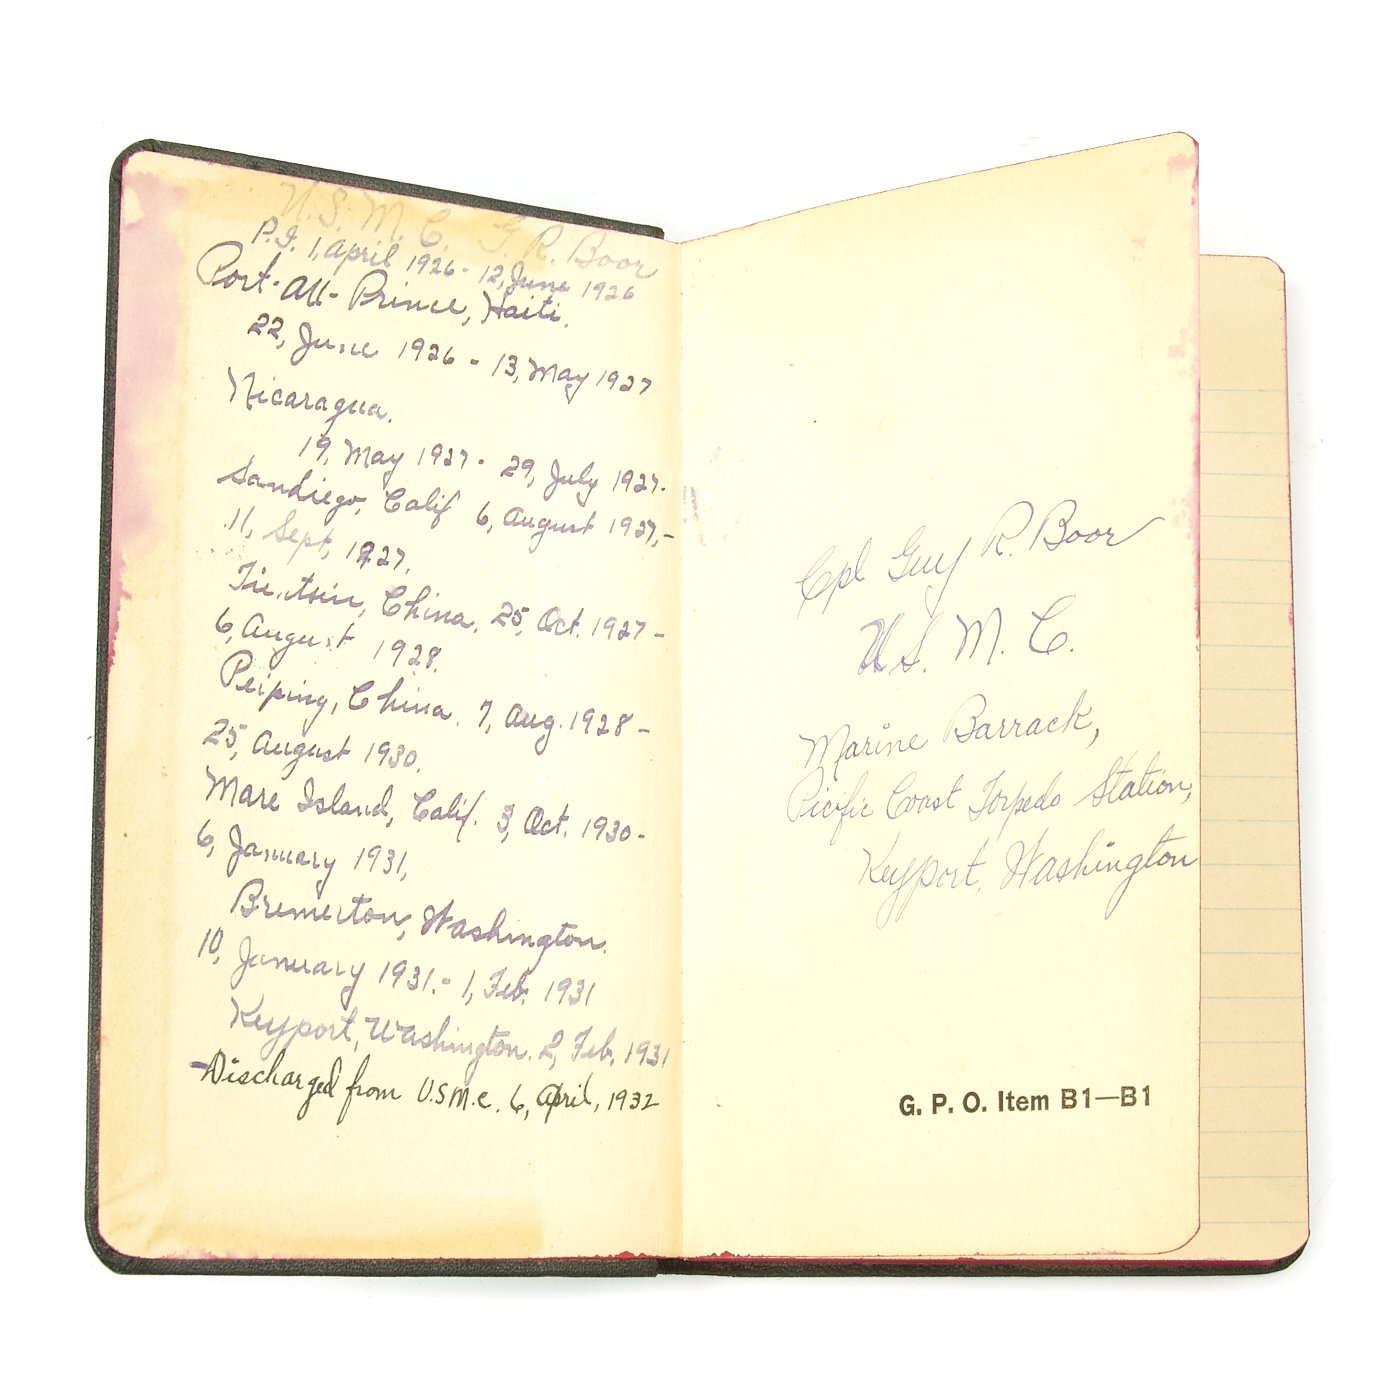 U.S. M. C. G. R. Boor
P.I. 1, April 1926 - 12, June 1926
Port-Au-Prince, Haiti.
22, June 1926 - 13, May 1927
Nicaragua.
19, May 1927 - 29, July 1927.
Sandiego, Calif 6, August 1927, -
11, Sept, 1927.
Tientsin, China. 25, Oct. 1927 -
6, August 1928.
Peiping, China. 7, Aug. 1928 -
25, August 1930.
Mare Island, Calif. 3, Oct. 1930 -
6, January 1931,
Bremerton, Washington.
10, January 1931. - 1, Feb. 1931
Keyport, Washington. 2, Feb. 1931
- Discharged from U.S.M.C. 6, April, 1932
Cpl Guy R. Boor
U.S. M. C.
Marine Barrack,
Picific Coast Torpedo Station,
Keyport, Washington
G. P. O. Item B1—B1